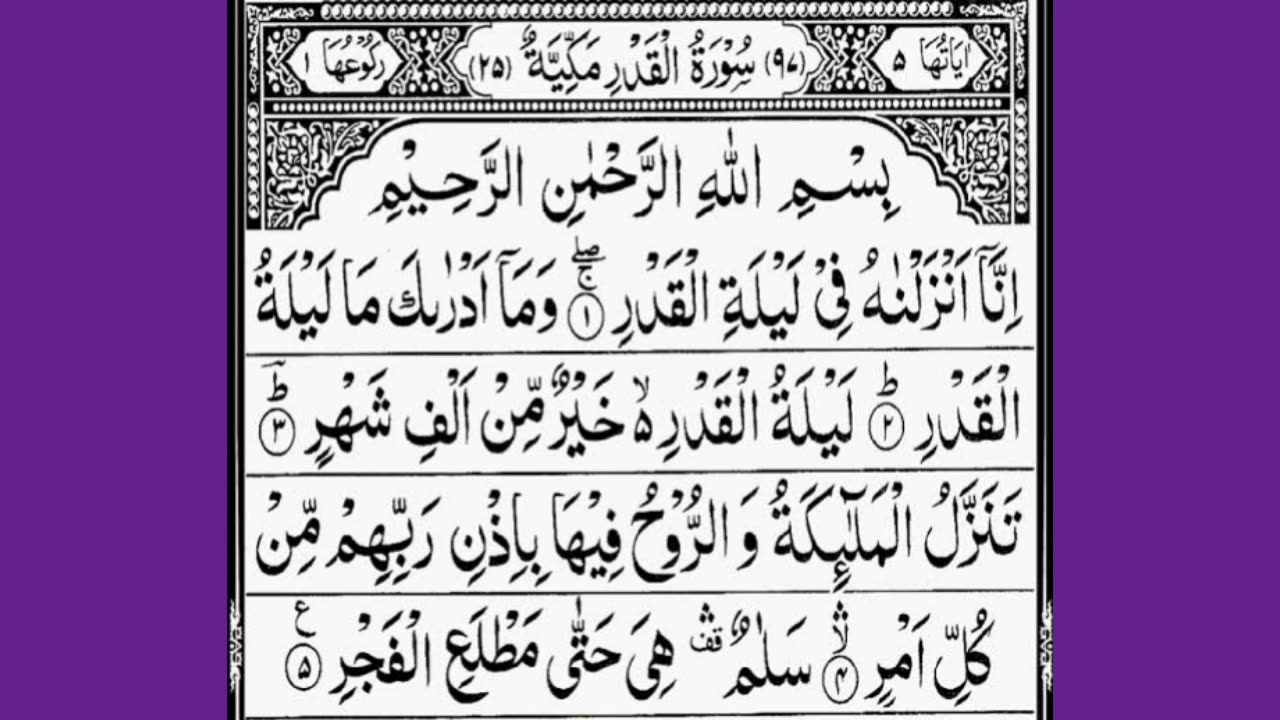 اٰیَاتُهَا ۵ (۹۷) سُوْرَةُ الْقَدْرِ مَكِّیَّةٌ (۲۵) رُكُوْعُهَا ۱
بِسْمِ اللّٰهِ الرَّحْمٰنِ الرَّحِیْمِ
اِنَّاۤ اَنْزَلْنٰهُ فِیْ لَیْلَةِ الْقَدْرِ ۚۖ ۱ وَمَاۤ اَدْرٰىكَ مَا لَیْلَةُ
الْقَدْرِ ؕ ۲ لَیْلَةُ الْقَدْرِ ۙ۬ خَیْرٌ مِّنْ اَلْفِ شَهْرٍ ؕؔ ۳
تَنَزَّلُ الْمَلٰٓىِٕكَةُ وَ الرُّوْحُ فِیْهَا بِاِذْنِ رَبِّهِمْ مِّنْ
كُلِّ اَمْرٍ ۙۛ ۴ سَلٰمٌ ۛ۫ قف هِیَ حَتّٰى مَطْلَعِ الْفَجْرِ ع ۵